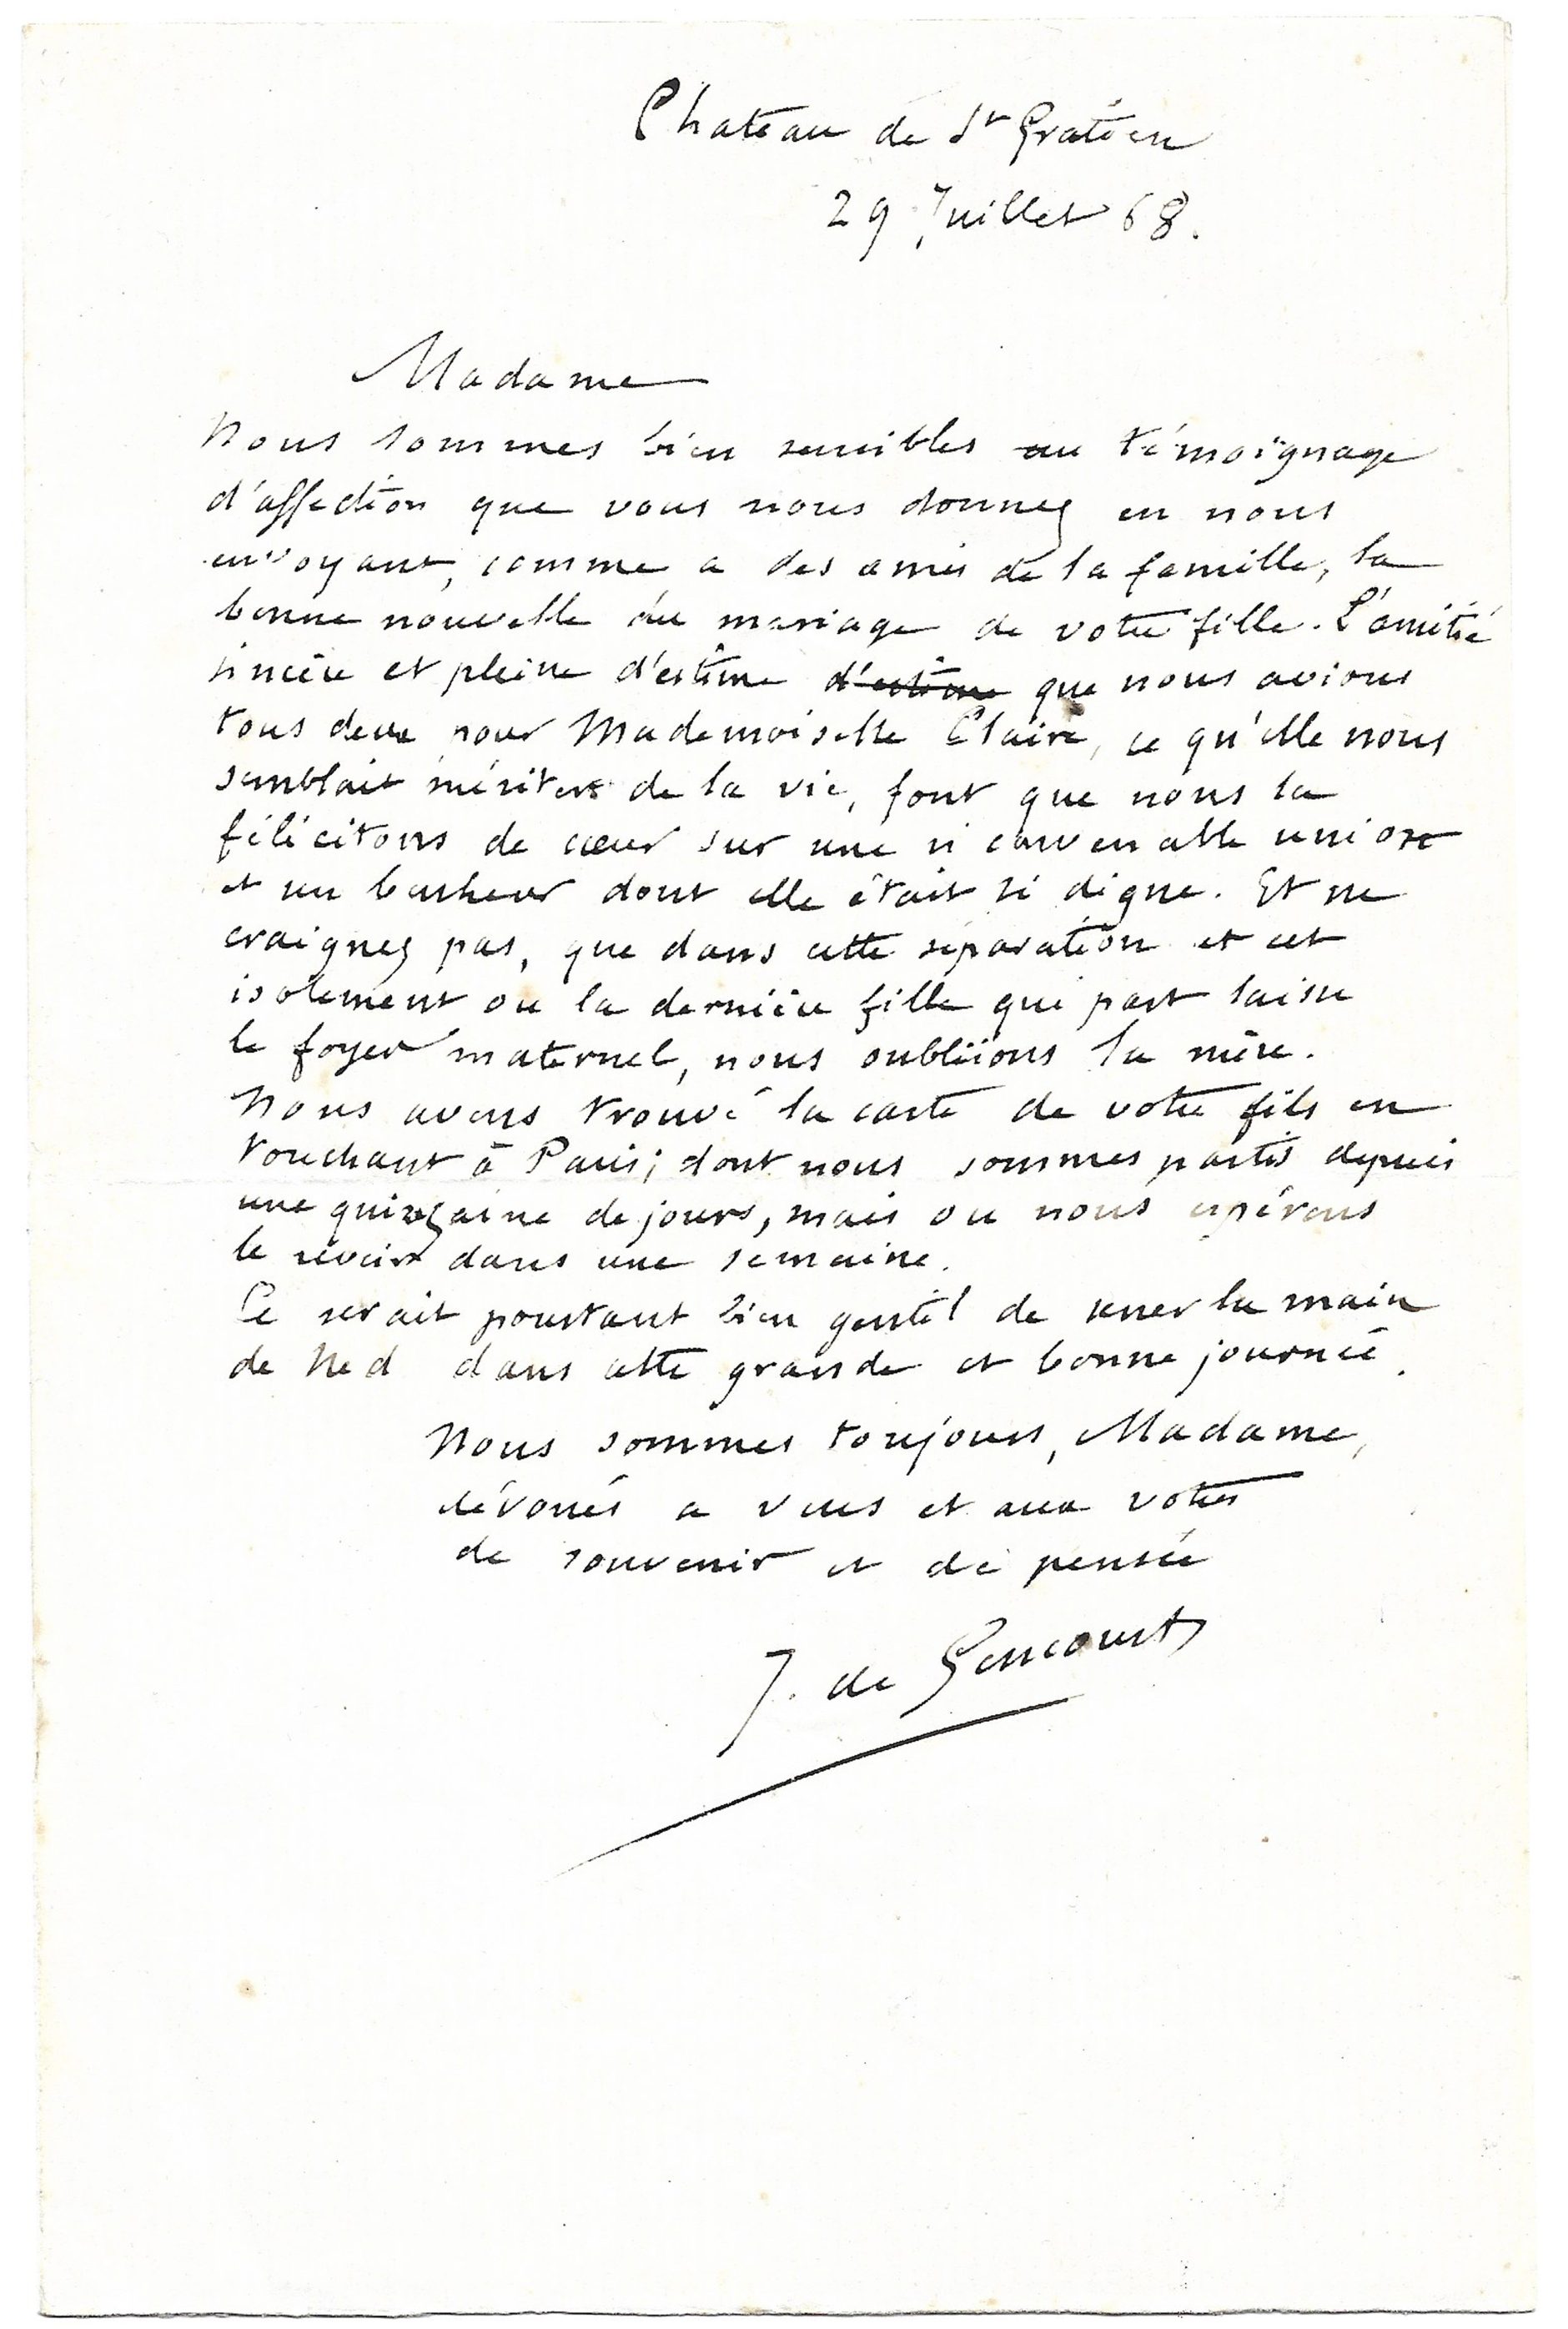 Chateau de St Gratien
29 Juillet 68.
Madame
Nous sommes bien sensibles au témoignage
d'affection que vous nous donnez en nous
envoyant, comme a des amis de la famille, la
bonne nouvelle du mariage de votre fille. L'amitié
sincère et pleine d'estime d'estime que nous avions
tous deux pour Mademoiselle Claire, ce qu'elle nous
semblait mériter de la vie, font que nous la
félicitons de cœur sur une si convenable union
et un bonheur dont elle était si digne. Et ne
craignez pas, que dans cette séparation et cet
isolement ou la dernière fille qui part laisse
le foyer maternel, nous oubliions la mère.
Nous avons trouvé la carte de votre fils en
touchant à Paris; dont nous sommes partis depuis
une quinzaine de jours, mais ou nous espérons
le revoir dans une semaine.
Ce serait pourtant bien gentil de serrer la main
de Ned dans cette grande et bonne journée.
Nous sommes toujours, Madame,
dévoués a vous et aux votres
de souvenir et de pensée
J. de Goncourt